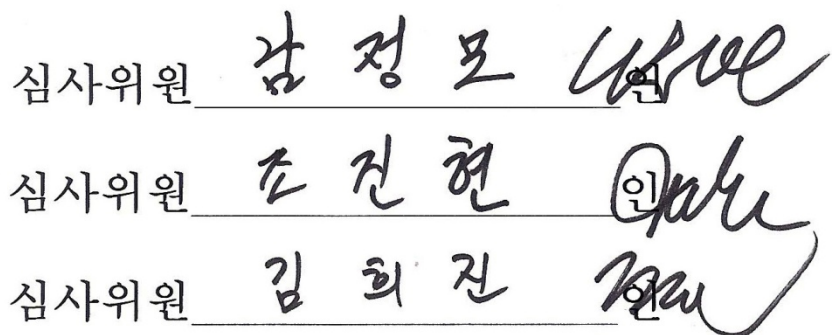 심사위원 감정모 인
심사위원 조진현 인
심사위원 김희진 인